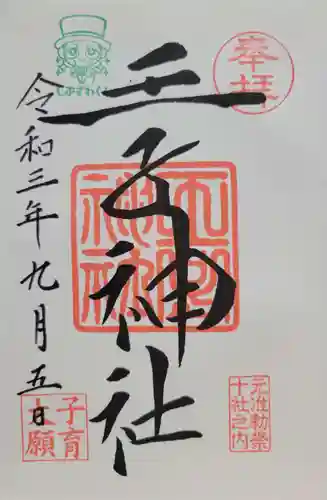 奉拝
王子神社
元准勅祭
十社之内
しぶさわくん
令和三年九月五日
子育
大願